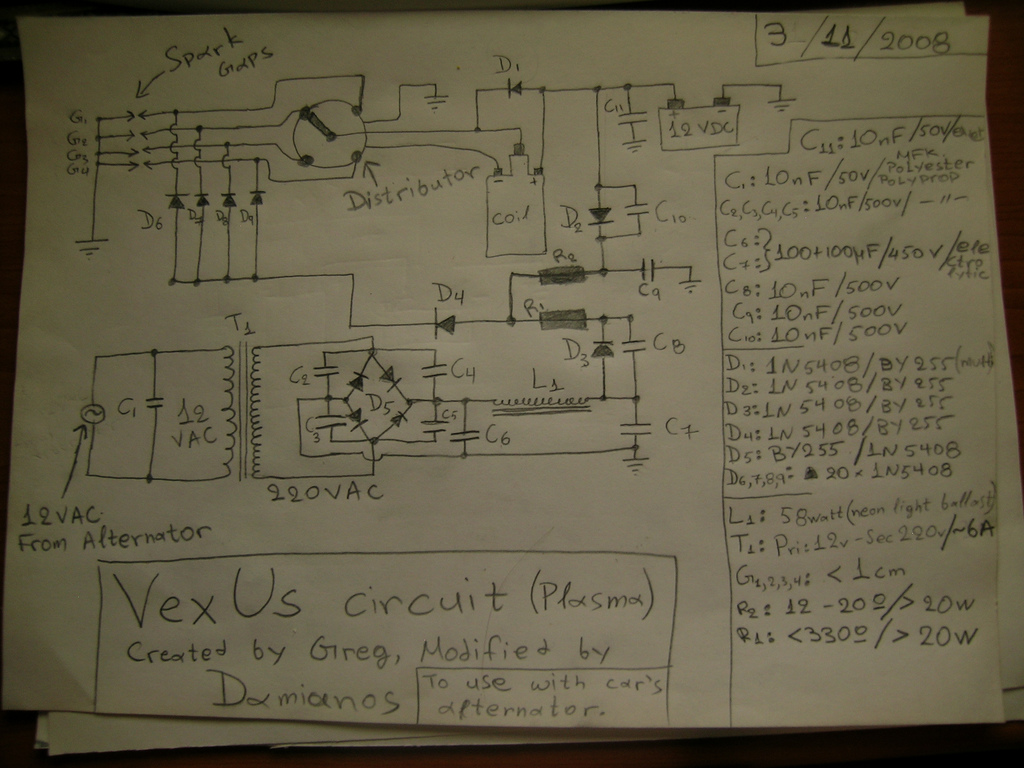 3/11/2008
Spark
Gaps
G1
G2
G3
G4
D6
D8
D9
Distributor
D1
C11
+ -
12VDC
- +
coil
D2
C10
R2
C9
D4
R1
D3
C8
T1
C1
12
VAC
C2
C3
D5
C4
C5
C6
L1
C7
220VAC
12VAC
From Alternator
C11: 10nF/50V/
C1: 10nF/50V/MFK Polyester PolyProp
C2,C3,C4,C5: 10nF/500V/ -"-
C6:
C7: } 100+100μF/450V/electrolytic
C8: 10nF/500V
C9: 10nF/500V
C10: 10nF/500V
D1: 1N5408/BY255
D2: 1N5408/BY255
D3: 1N5408/BY255
D4: 1N5408/BY255
D5: BY255/1N5408
D6,7,8,9: 20×1N5408
L1: 58watt(neon light ballast)
T1: Pri:12v-Sec 220v/~6A
G1,2,3,4: <1cm
R2: 12-20Ω/>20w
R1: <330Ω/>20W
VexUs circuit (Plasma)
Created by Greg, Modified by
Damianos
To use with car's
alternator.